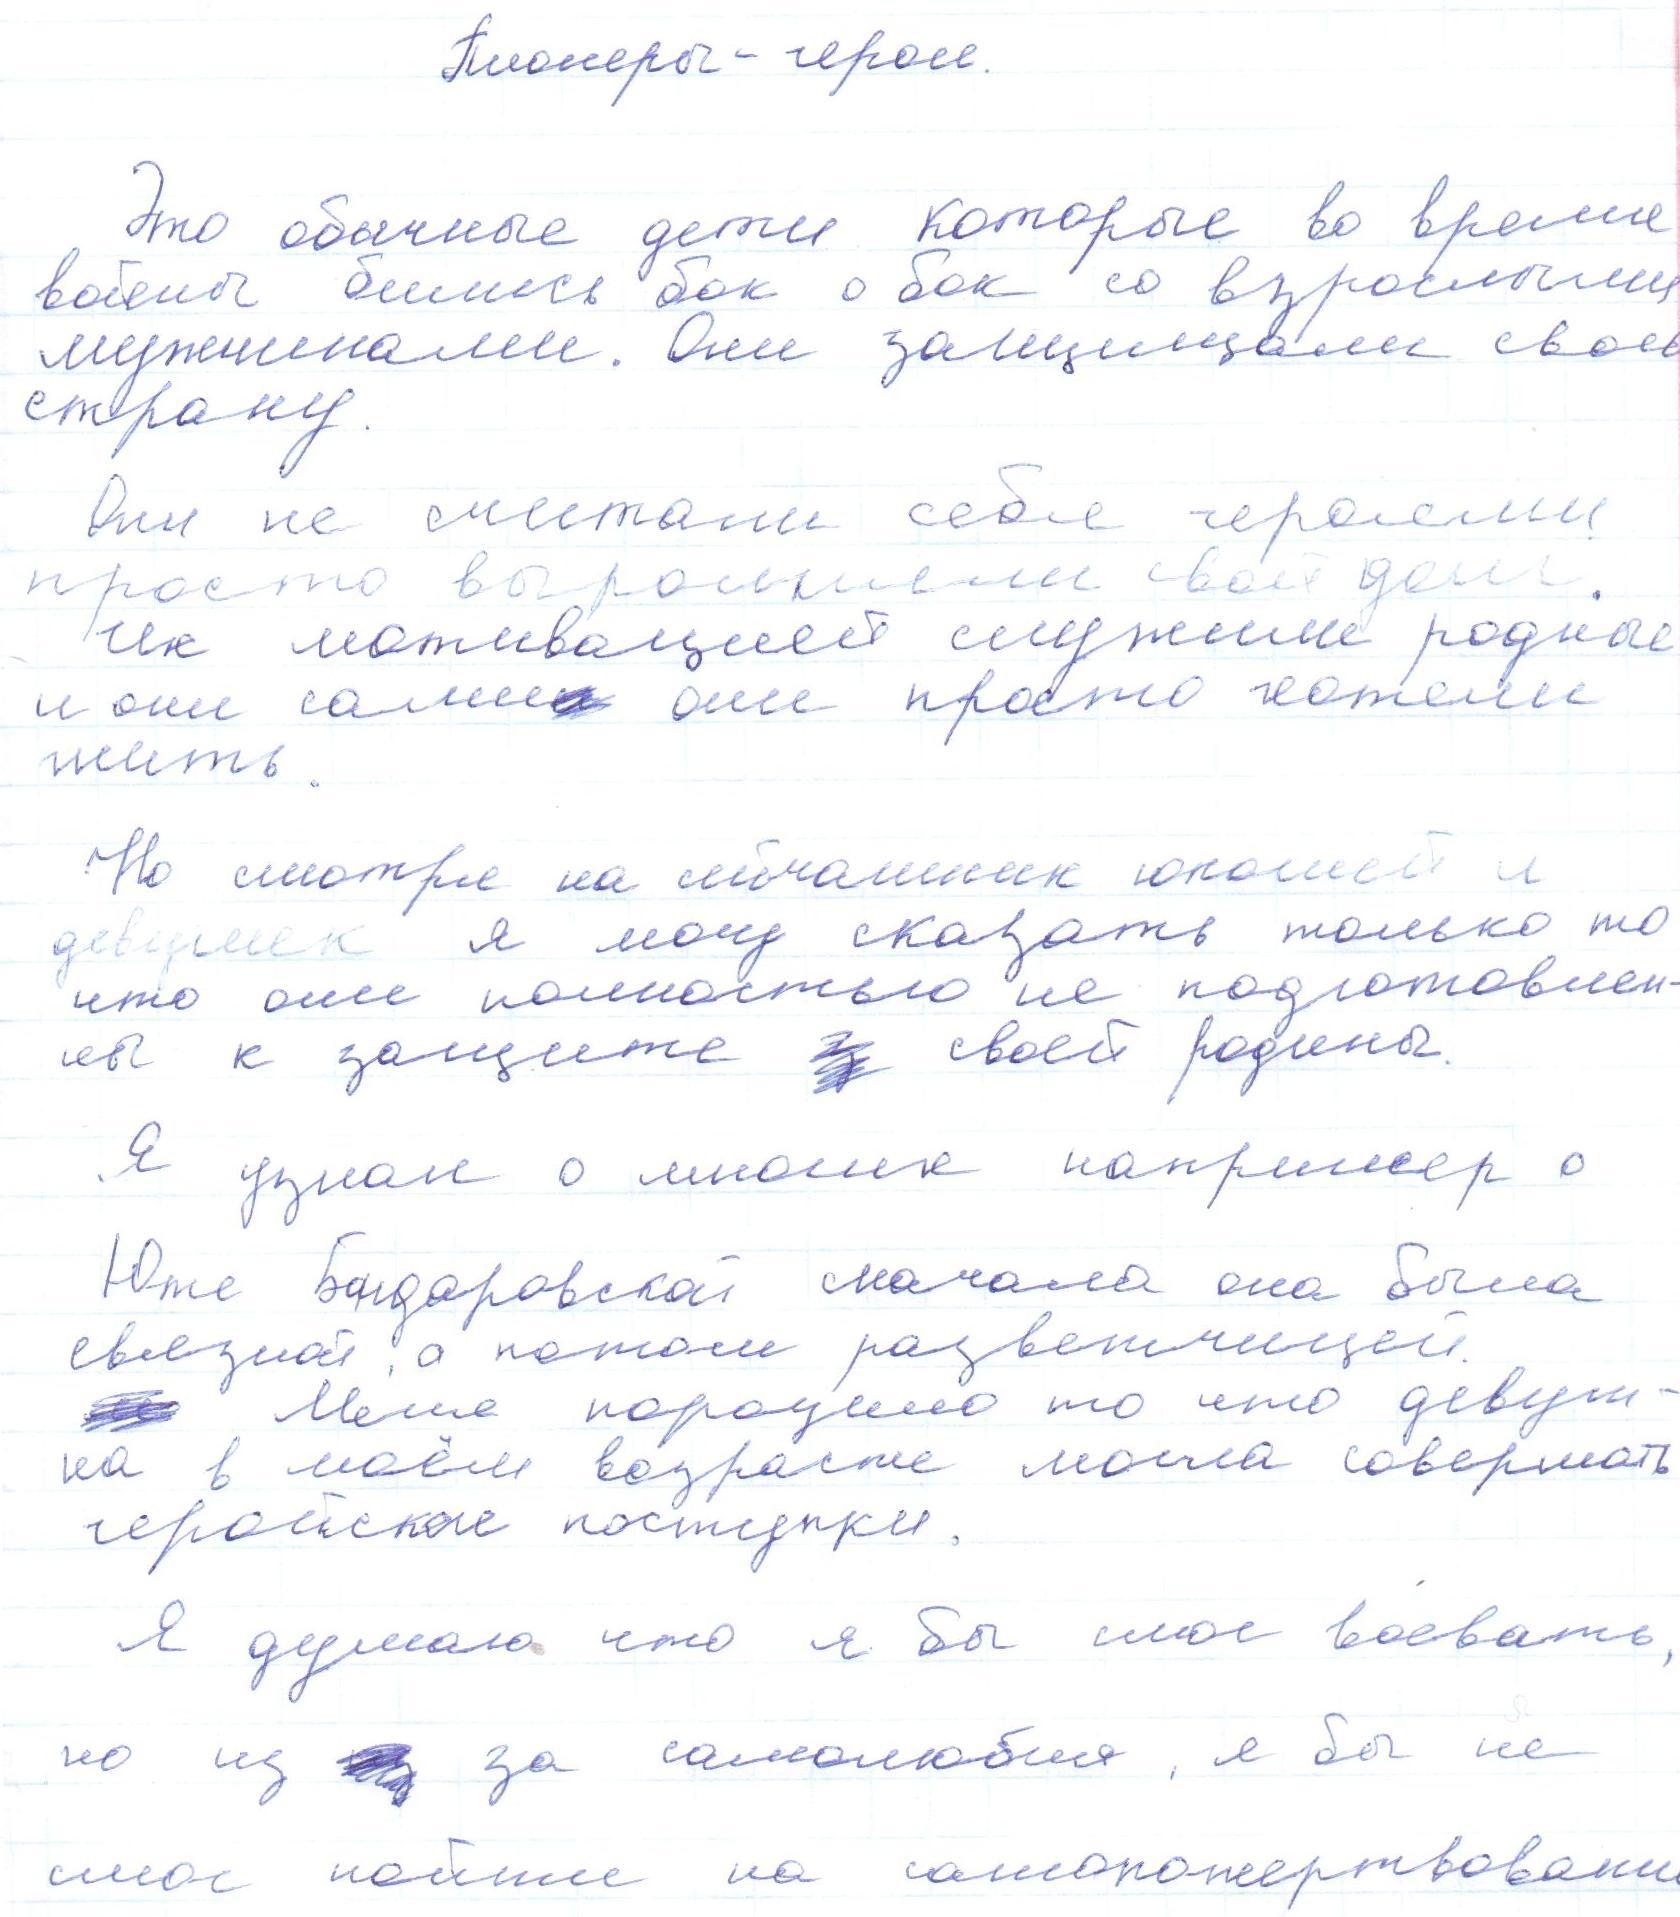 Пионеры-герои.
Это обычные дети которые во время
войены бились бок о бок со взрослыми
мужчинами. Они защищали свою
страну.
Они не считали себя героями
просто выполняли свой долг.
Их мотивацией служили родные
и они сами они просто хотели
жить.
Но смотря на нынешних юношей и
девушек я могу сказать только то
что они полностью не подготовлен-
ны к защите своей родины.
Я узнал о многих например о
Юте Бондаровской сначала она была
связной, а потом разветчицей.
Меня поразило то что девуш-
ка в моём возрасте могла совершать
геройские поступки.
Я думаю что я бы смог воевать,
но из за самолюбия, я бы не
смог пойти на самопожертвование